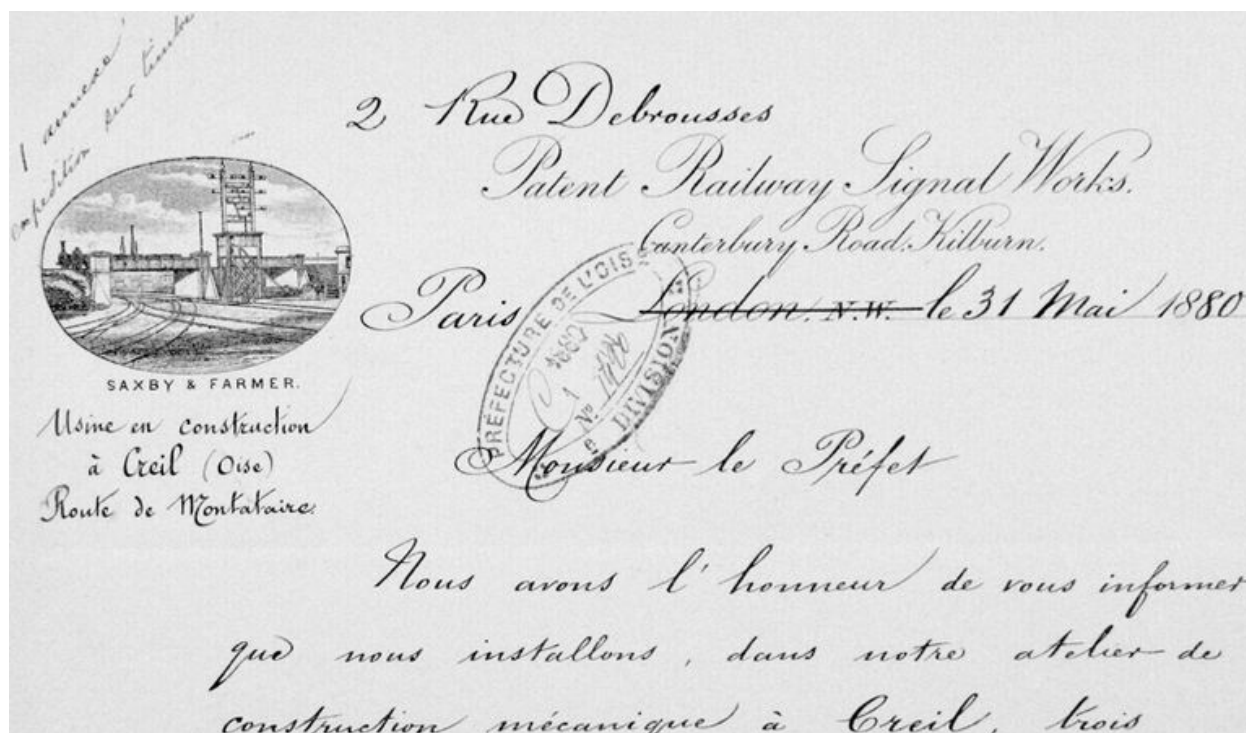 1 annexe
expédition sur timbre
2 Rue Debrousses
Patent Railway Signal Works.
Canterbury Road. Kilburn.
Paris London, N.W. le 31 Mai 1880
PRÉFECTURE DE L'OISE
1880
1
No
e DIVISION
SAXBY & FARMER.
Usine en construction
à Creil (Oise)
Route de Montataire.
Monsieur le Préfet
Nous avons l'honneur de vous informer
que nous installons, dans notre atelier de
construction mécanique à Creil, trois